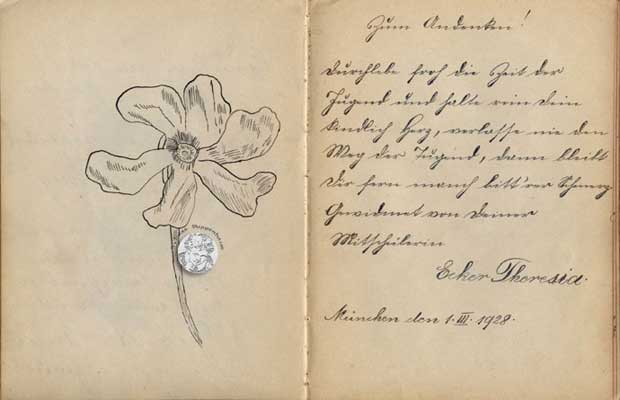 Zum Andenken!
Durchlebe froh die Zeit der
Jugend und halte rein dein
kindlich Herz, verlasse nie den
Weg der Tugend, dann bleibt
Dir fern manch bitt'rer Schmerz
Gewidmet von Deiner
Mitschülerin
Ecker Theresia.
München den 1. III. 1928.